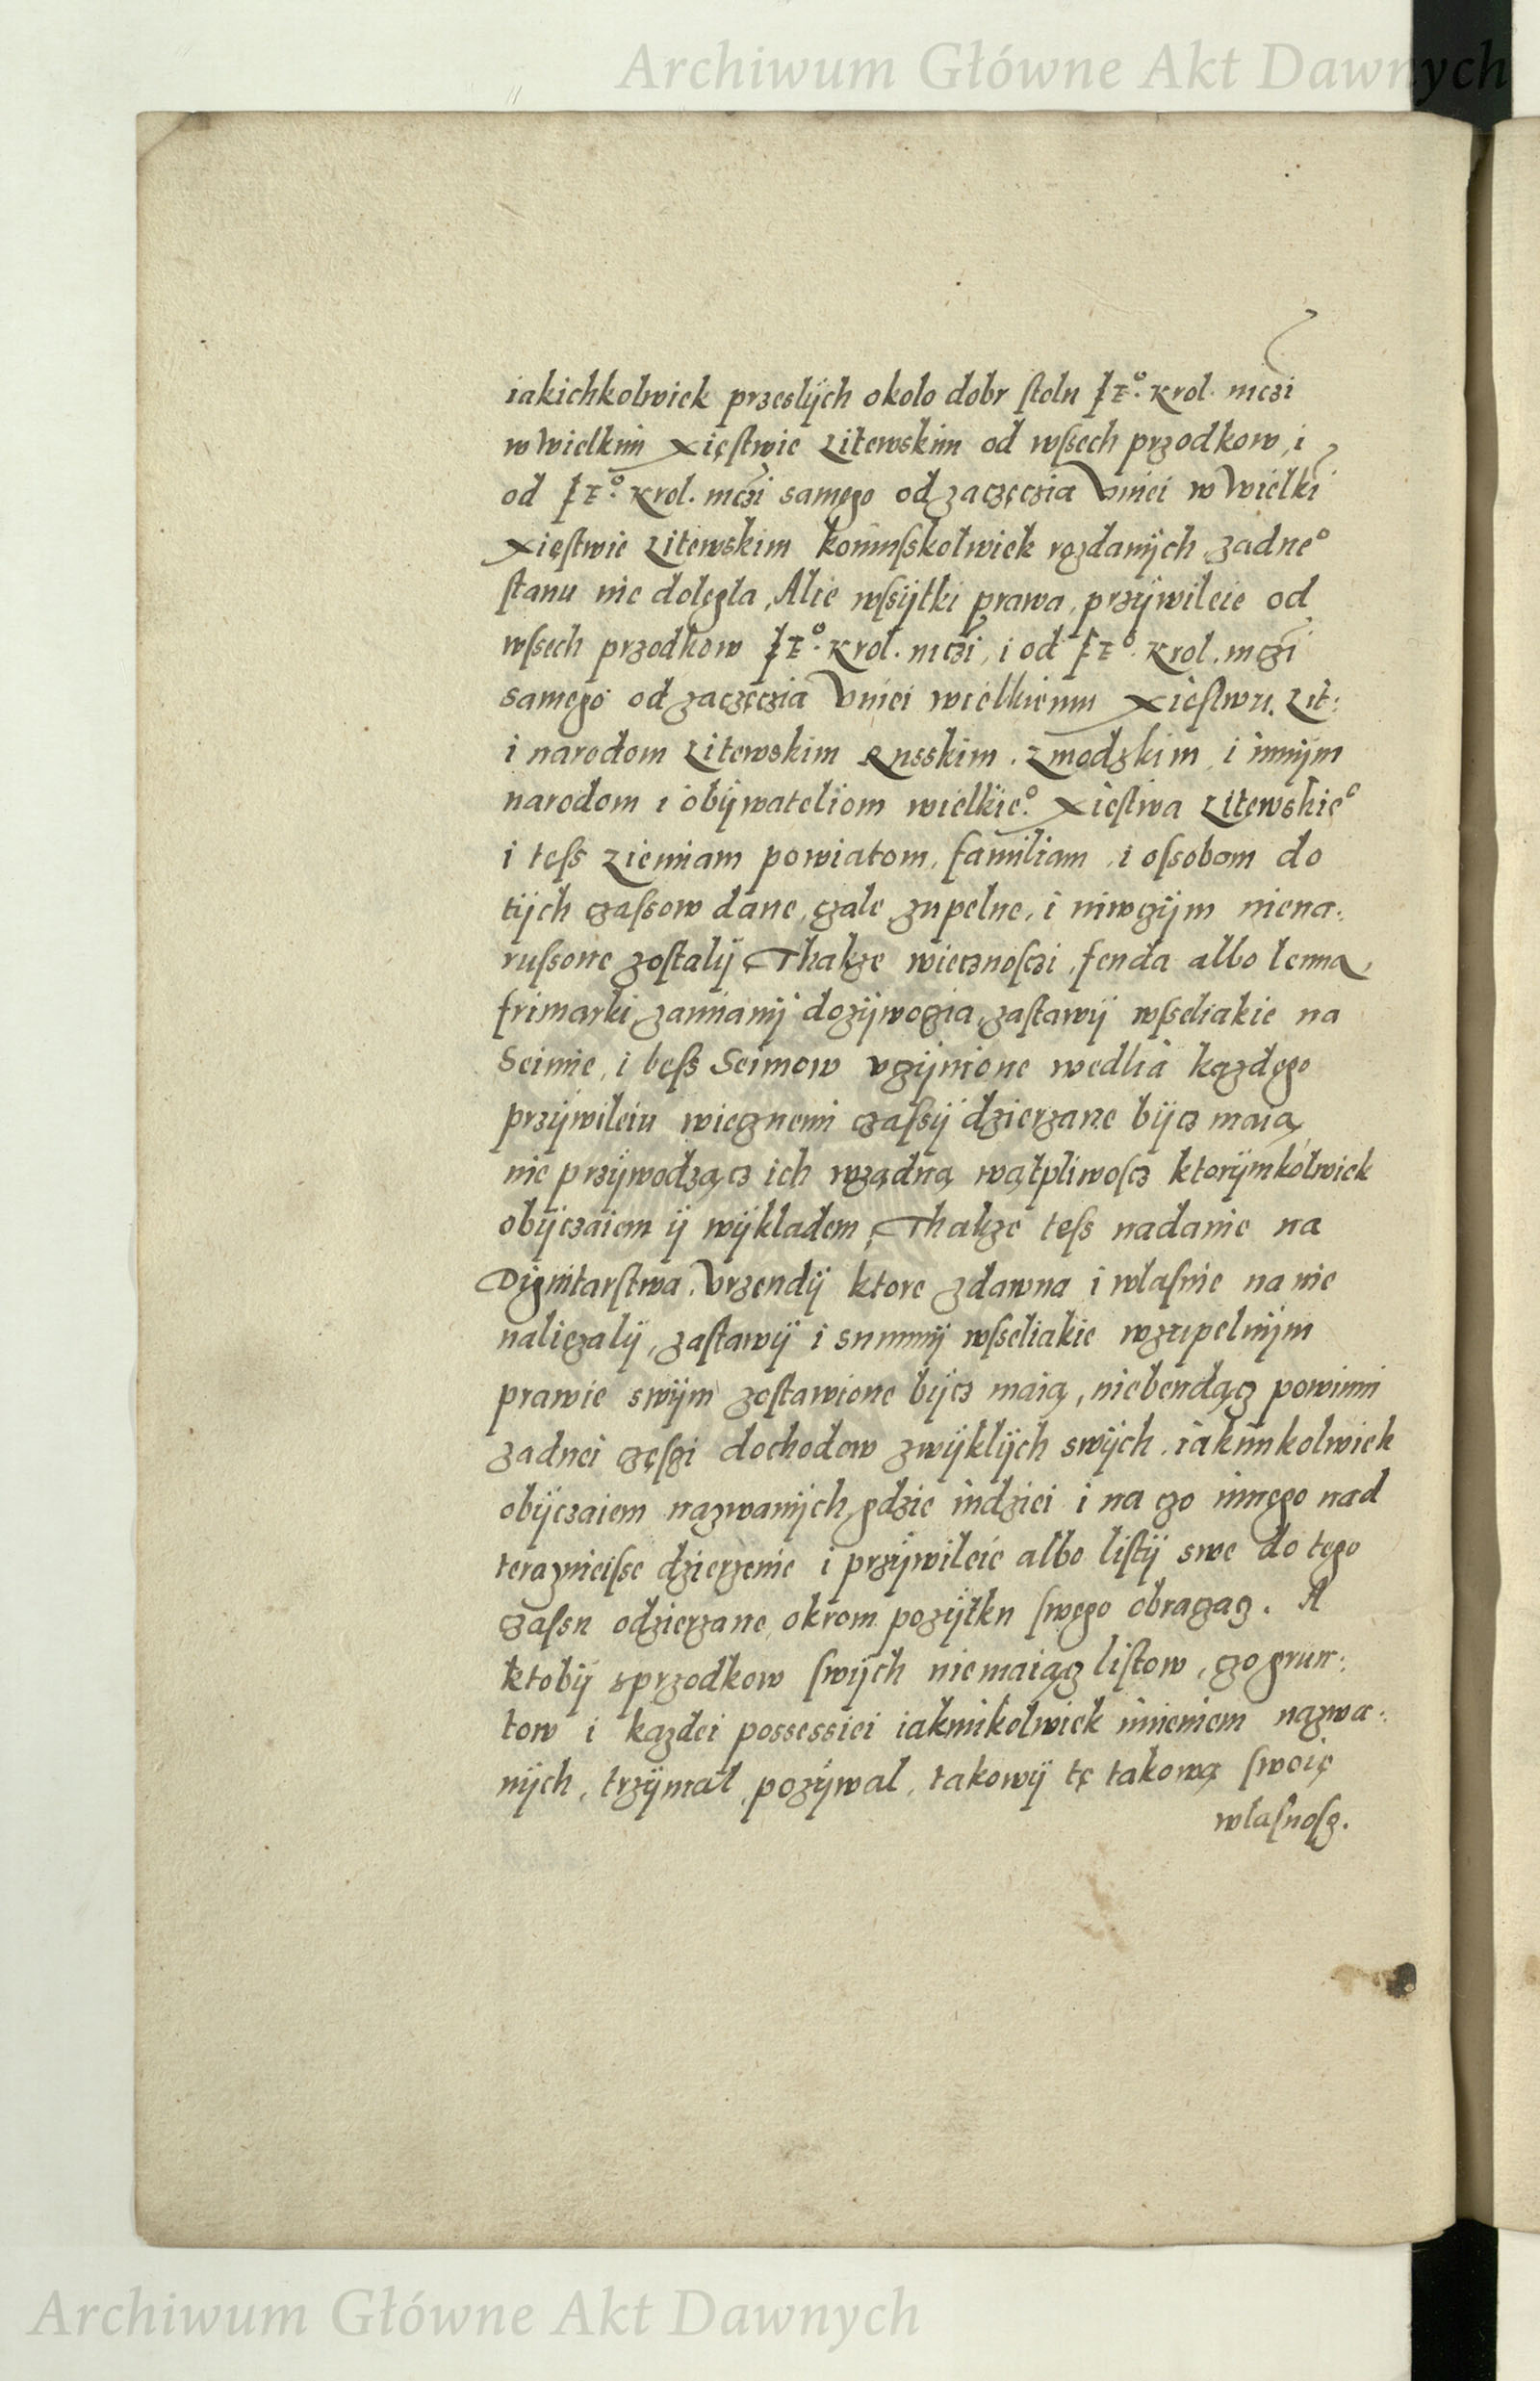 Archiwum Główne Akt Dawnych
iakichkolwiek przeslÿch okolo dobr stolu Krol. mczi
w Wielkim Xięstwie Litewskim od wssech przodkow, i
od Krol. mczi samego od zaczęczia Vniei w Wielki
Xięstwie Litewskim komusskolwiek rozdanÿch, zadne°
stanu nie dolegla, Alie wssÿtki prawa, przÿwileie od
wssech przodkow Krol. mczi, i od Krol. mczi
samego od zaczęczia Vniei wielkiemu Xięstwu. Lit:
i narodom Litewskim Russkim. Zmodzkim, i innÿm
narodom i obÿwateliom wielkie°. Xięstwa Litewskie°
i tess Ziemiam powiatom, familiam, i ossobom do
tÿch czassow dane, czale, zupelne, i niwczÿm niena:
russone zostalÿ, Thakze wiecznosczi, feuda albo lenna,
frimarki, zamianÿ dozÿwoczia, zastawÿ wsseliakie na
Seimie, i bess Seimow vczÿnione wedlia kazdego
przÿwileiu wiecznemi czassÿ dzierzane bÿcz maią,
nie przÿwodzącz ich wzadną wątpliwoscz ktorÿmkolwiek
obÿczaiem ÿ wÿkladem, Thakze tess nadanie na
Dignitarstwa. Vrzendÿ ktore zdawna i wlasnie na nie
naliezalÿ, zastawÿ i summÿ wsseliakie wzupelnÿm
prawie swÿm zostawione bÿcz maią, niebendącz powinni
zadnei częsczi dochodow zwÿklÿch swÿch. iakimkolwiek
obÿczaiem nazwanÿch, gdzie indziei i na czo innego nad
terazneisse dzierzenie i przÿwileie albo listÿ swe do tego
czassu odzierzane, okrom pozÿtku swego obraczacz. A
ktobÿ sprzodkow swÿch niemaiącz listow, czo grun:
tow i kazdei possessiei iakimkolwiek imieniem nazwa:
nÿch, trzÿmal, pozÿwal, takowÿ tę takową swoię
wlasnosz.
Archiwum Główne Akt Dawnych